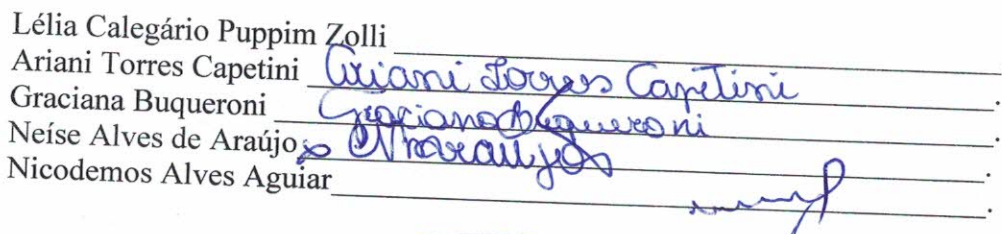 Lélia Calegário Puppim Zolli
Ariani Torres Capetini Ariani Torres Capetini.
Graciana Buqueroni Graciana Buqueroni.
Neíse Alves de Araújo NAraújo.
Nicodemos Alves Aguiar.